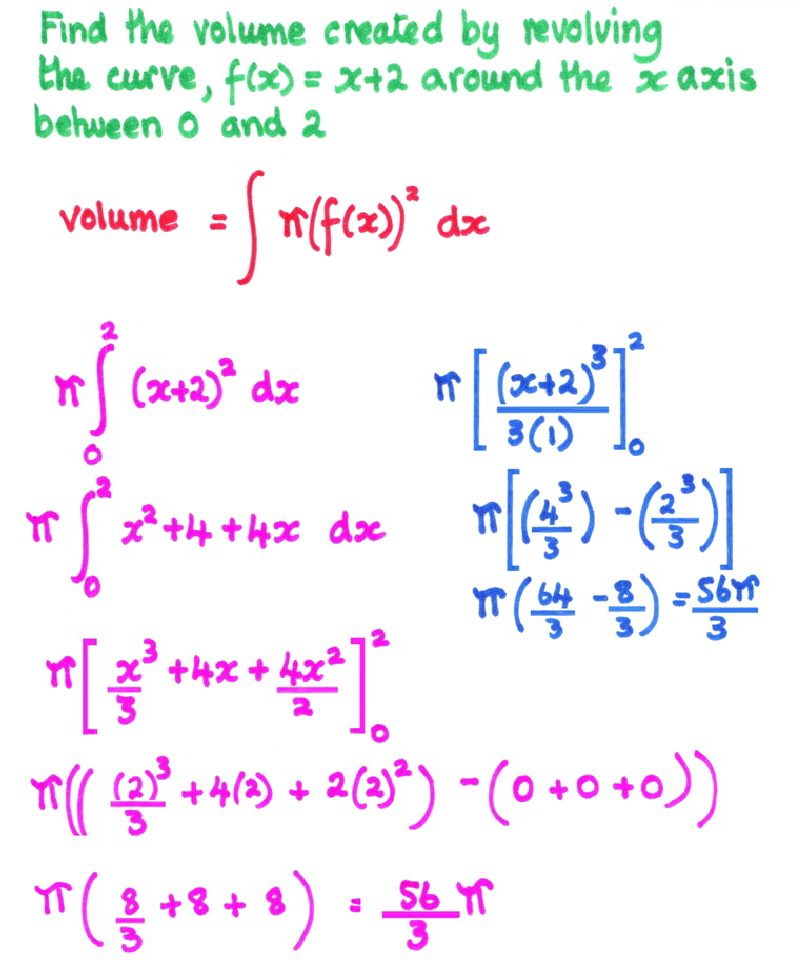 Find the volume created by revolving
the curve, f(x) = x+2 around the x axis
between 0 and 2
volume = ∫ π(f(x))² dx
π ∫₀² (x+2)² dx
π ∫₀² x²+4+4x dx
π [ x³/3 + 4x + 4x²/2 ]₀²
π(( (2)³/3 + 4(2) + 2(2)² ) - (0+0+0))
π ( 8/3 + 8 + 8 ) = 56/3 π
π [ (x+2)³/3(1) ]₀²
π [ (4³/3) - (2³/3) ]
π ( 64/3 - 8/3 ) = 56π/3